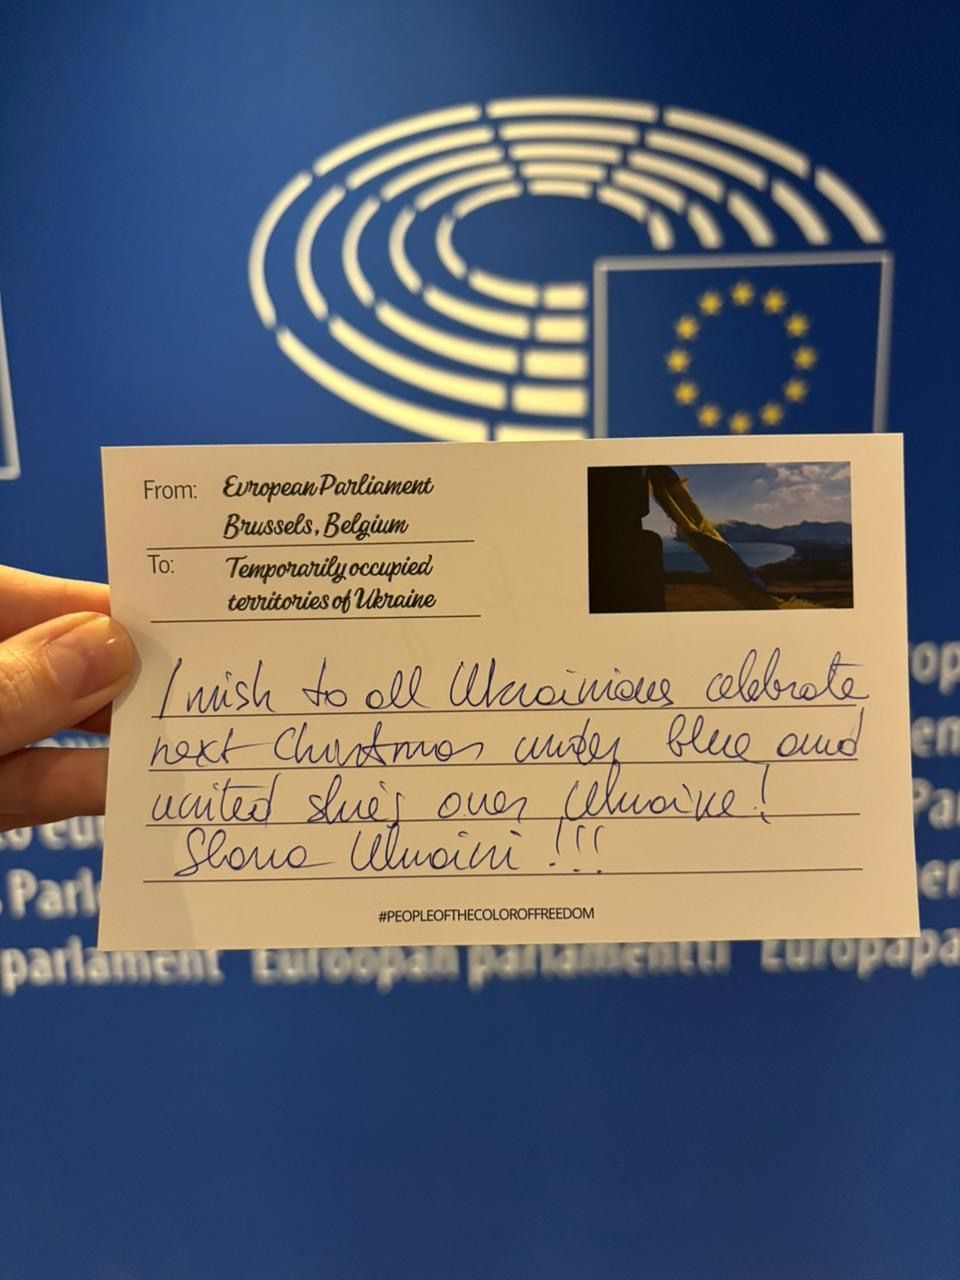 From: European Parliament
Brussels, Belgium
To: Temporarily occupied
territories of Ukraine
I wish to all Ukrainians celebrate
next Christmas under blue and
united skies over Ukraine!
Slava Ukraini !!!
#PEOPLEOFTHECOLOROFFREEDOM
parlament Euroopan parlamentti Europapa